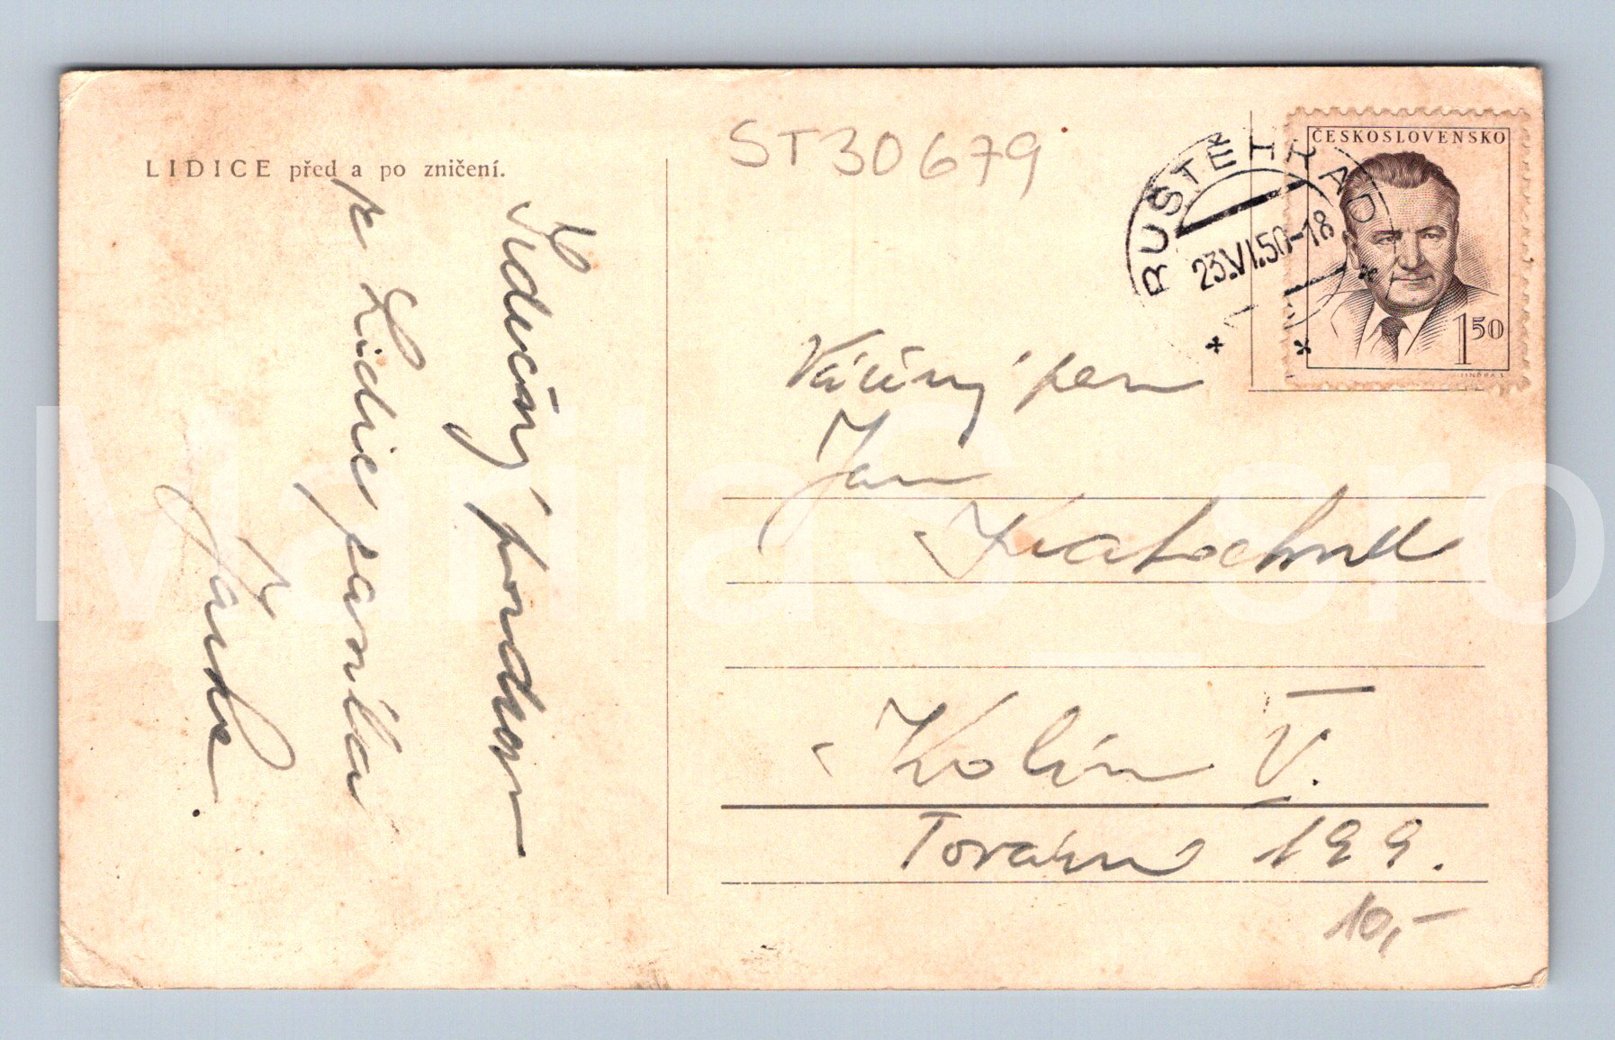 LIDICE před a po zničení.
Srdečný pozdrav
z Lidic posílá
Jarka.
ST30679
BUŠTĚHRAD
23.VI.50-18
ČESKOSLOVENSKO
150
Vážený pan
Jan
Kratochvíl
Kolín V.
Tovární 199.
10,-